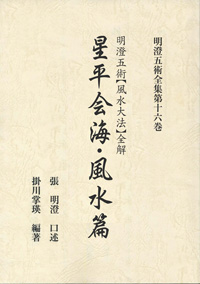 明澄五術全集第十六巻
明澄五術【風水大法】全解
星平会海・風水篇
張　明澄　口述
掛川掌瑛　編著